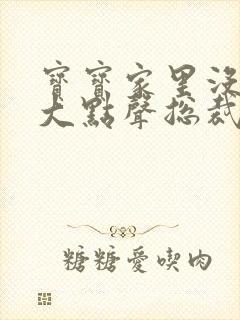 寶寶家里沒
大點聲總裁
糖糖愛喫肉